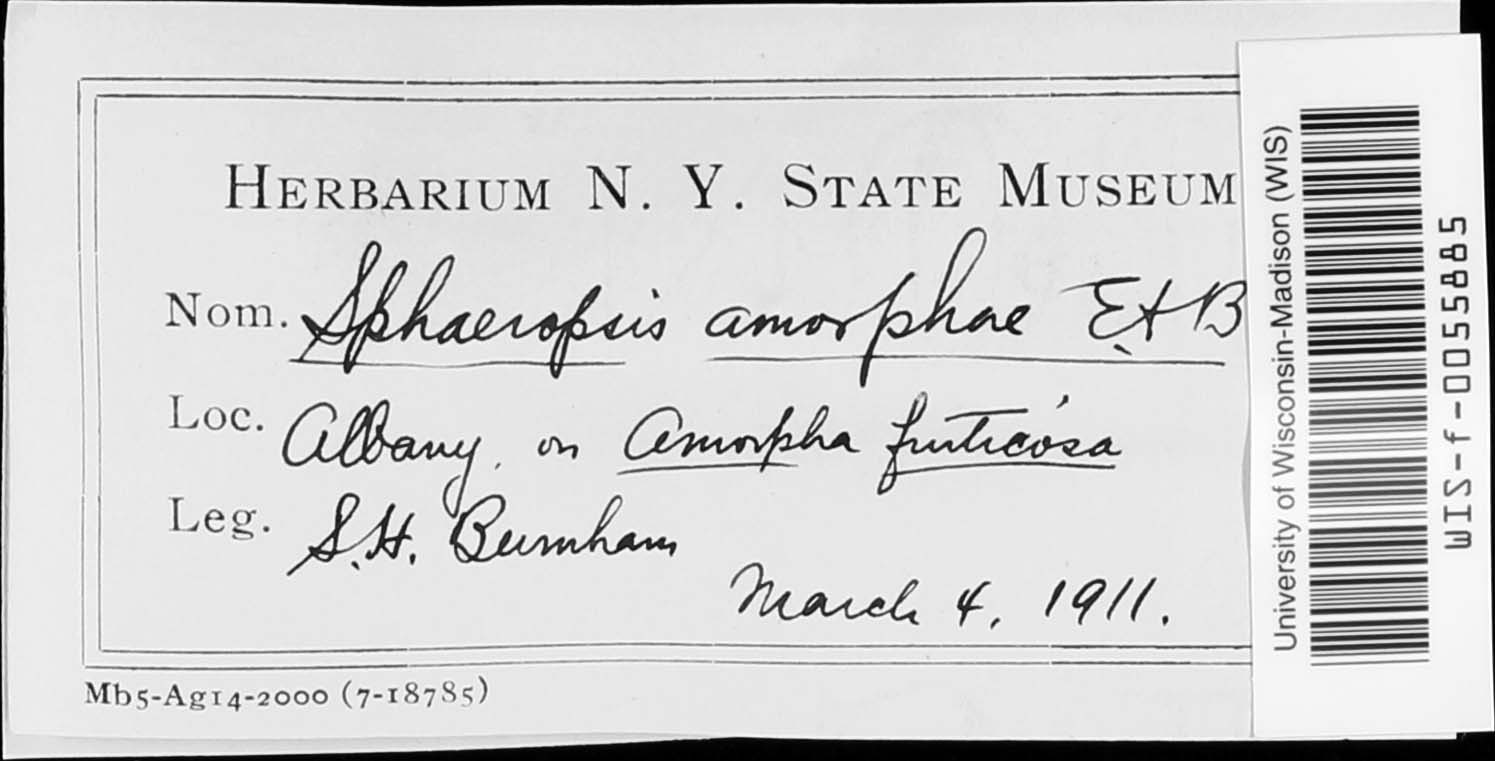 HERBARIUM N. Y. STATE MUSEUM
Nom. Sphaeropsis amorphae E. & B
Loc. Albany, on Amorpha fruticosa
Leg. S. H. Burnham
March 4, 1911.
Mb5-Ag14-2000 (7-18785)
University of Wisconsin-Madison (WIS)
WIS-f-0055885